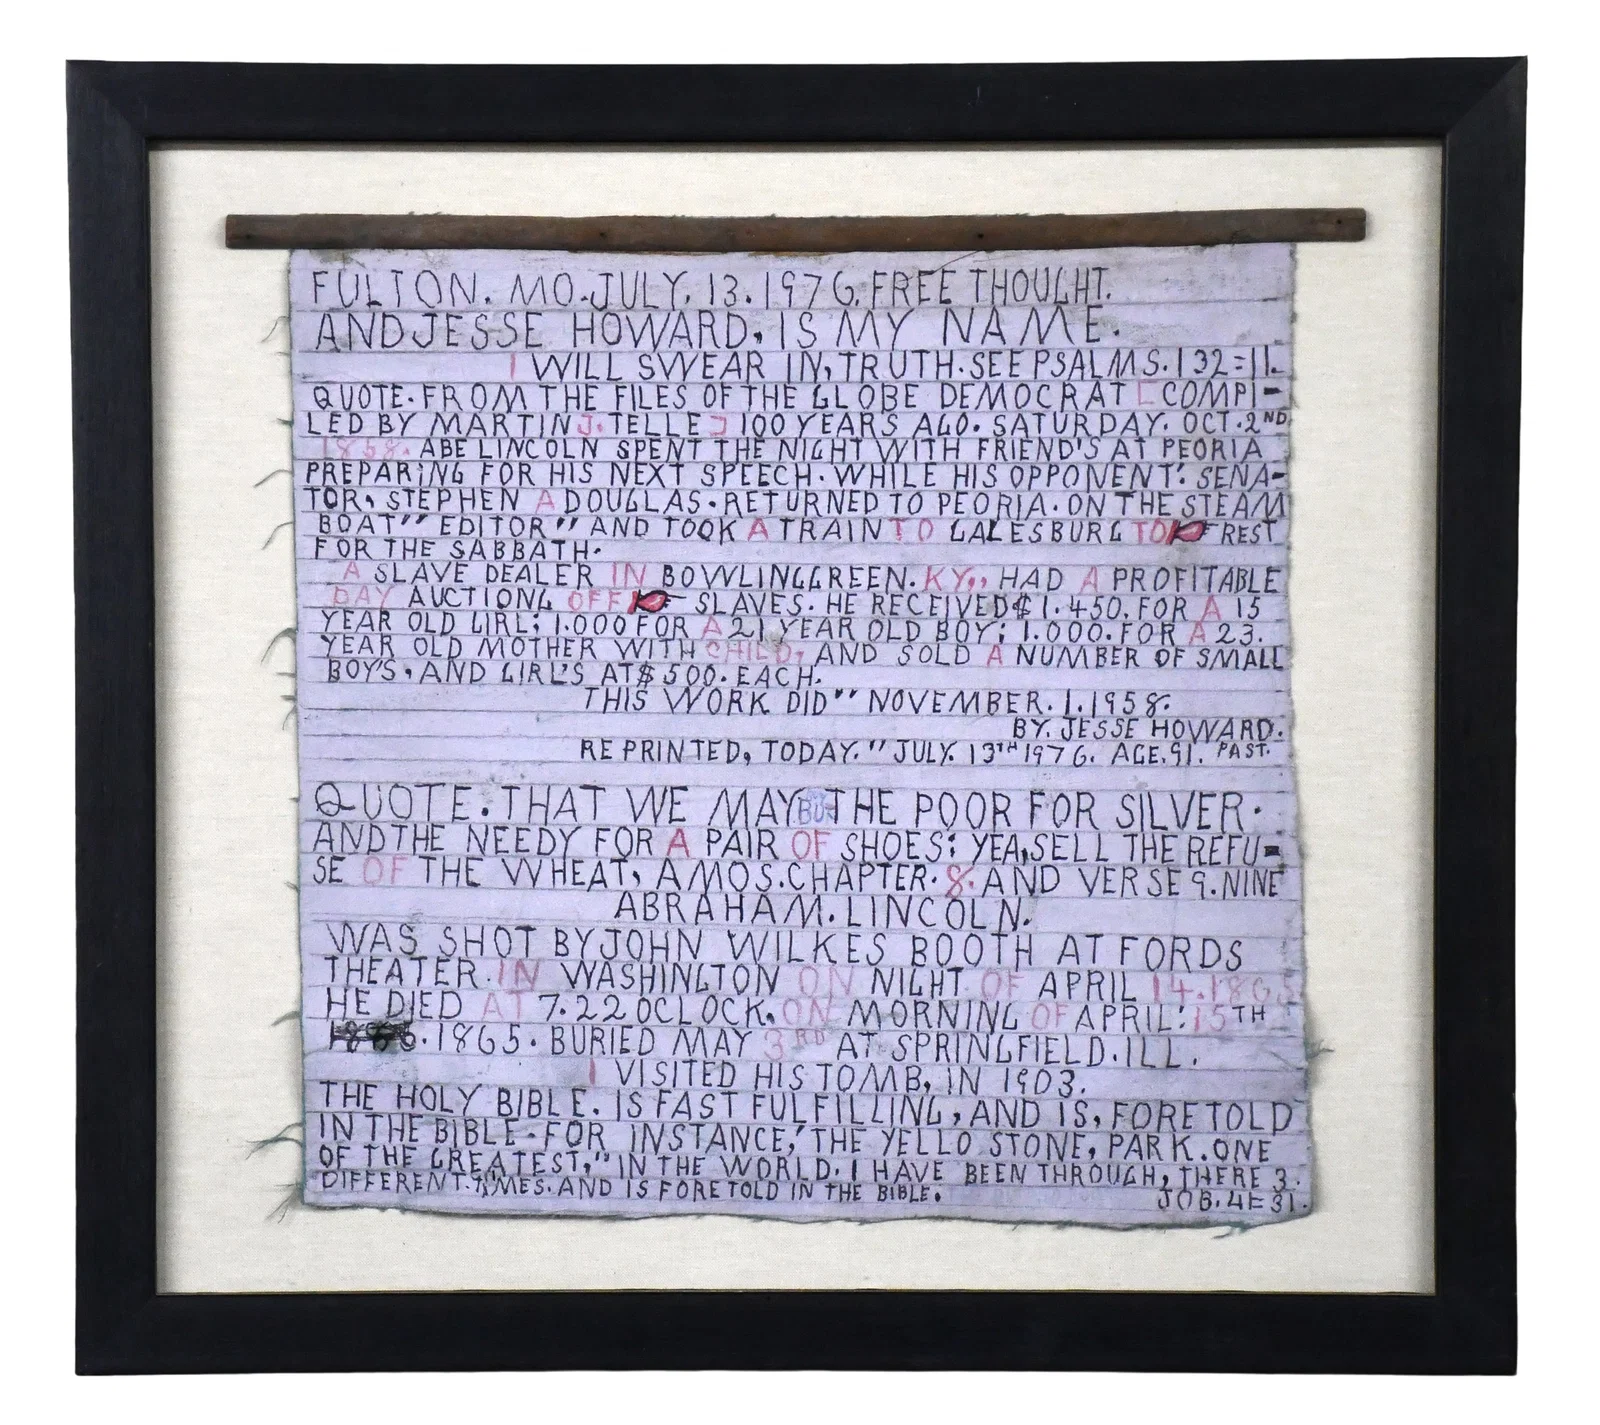 FULTON. MO. JULY. 13. 1976. FREE THOUGHT.
AND JESSE HOWARD. IS MY NAME.
I WILL SWEAR IN, TRUTH. SEE PSALMS. 132=11.
QUOTE. FROM THE FILES OF THE GLOBE DEMOCRAT [COMPI-
LED BY MARTIN J. TELLE] 100 YEARS AGO. SATURDAY. OCT. 2ND,
1858. ABE LINCOLN SPENT THE NIGHT WITH FRIEND'S AT PEORIA
PREPARING FOR HIS NEXT SPEECH. WHILE HIS OPPONENT: SENA-
TOR, STEPHEN A DOUGLAS. RETURNED TO PEORIA. ON THE STEAM
BOAT" EDITOR" AND TOOK A TRAIN TO GALESBURG TO REST
FOR THE SABBATH.
A SLAVE DEALER IN BOWLINGGREEN. KY,, HAD A PROFITABLE
DAY AUCTIONG OFF SLAVES. HE RECEIVED $1.450. FOR A 15
YEAR OLD GIRL; 1.000 FOR A 21 YEAR OLD BOY; 1.000. FOR A 23.
YEAR OLD MOTHER WITH CHILD, AND SOLD A NUMBER OF SMALL
BOY'S. AND GIRL'S AT $500. EACH.
THIS WORK DID" NOVEMBER. 1. 1958.
BY. JESSE HOWARD.
RE PRINTED, TODAY." JULY. 13TH 1976. AGE. 91. PAST.
QUOTE. THAT WE MAY BUY THE POOR FOR SILVER.
AND THE NEEDY FOR A PAIR OF SHOES: YEA, SELL THE REFU-
SE OF THE WHEAT, AMOS. CHAPTER. 8. AND VERSE 9. NINE
ABRAHAM. LINCOLN.
WAS SHOT BY JOHN WILKES BOOTH AT FORDS
THEATER. IN WASHINGTON ON NIGHT OF APRIL 14. 1865
HE DIED AT 7.22 OCLOCK. ON MORNING OF APRIL: 15TH
.1865. BURIED MAY 3RD AT SPRINGFIELD. ILL.
I VISITED HIS TOMB, IN 1903.
THE HOLY BIBLE. IS FAST FULFILLING, AND IS, FORETOLD
IN THE BIBLE. FOR INSTANCE," THE YELLO STONE, PARK. ONE
OF THE GREATEST," IN THE WORLD. I HAVE BEEN THROUGH, THERE 3.
DIFFERENT. TIMES. AND IS FORETOLD IN THE BIBLE. JOB. 4=31.